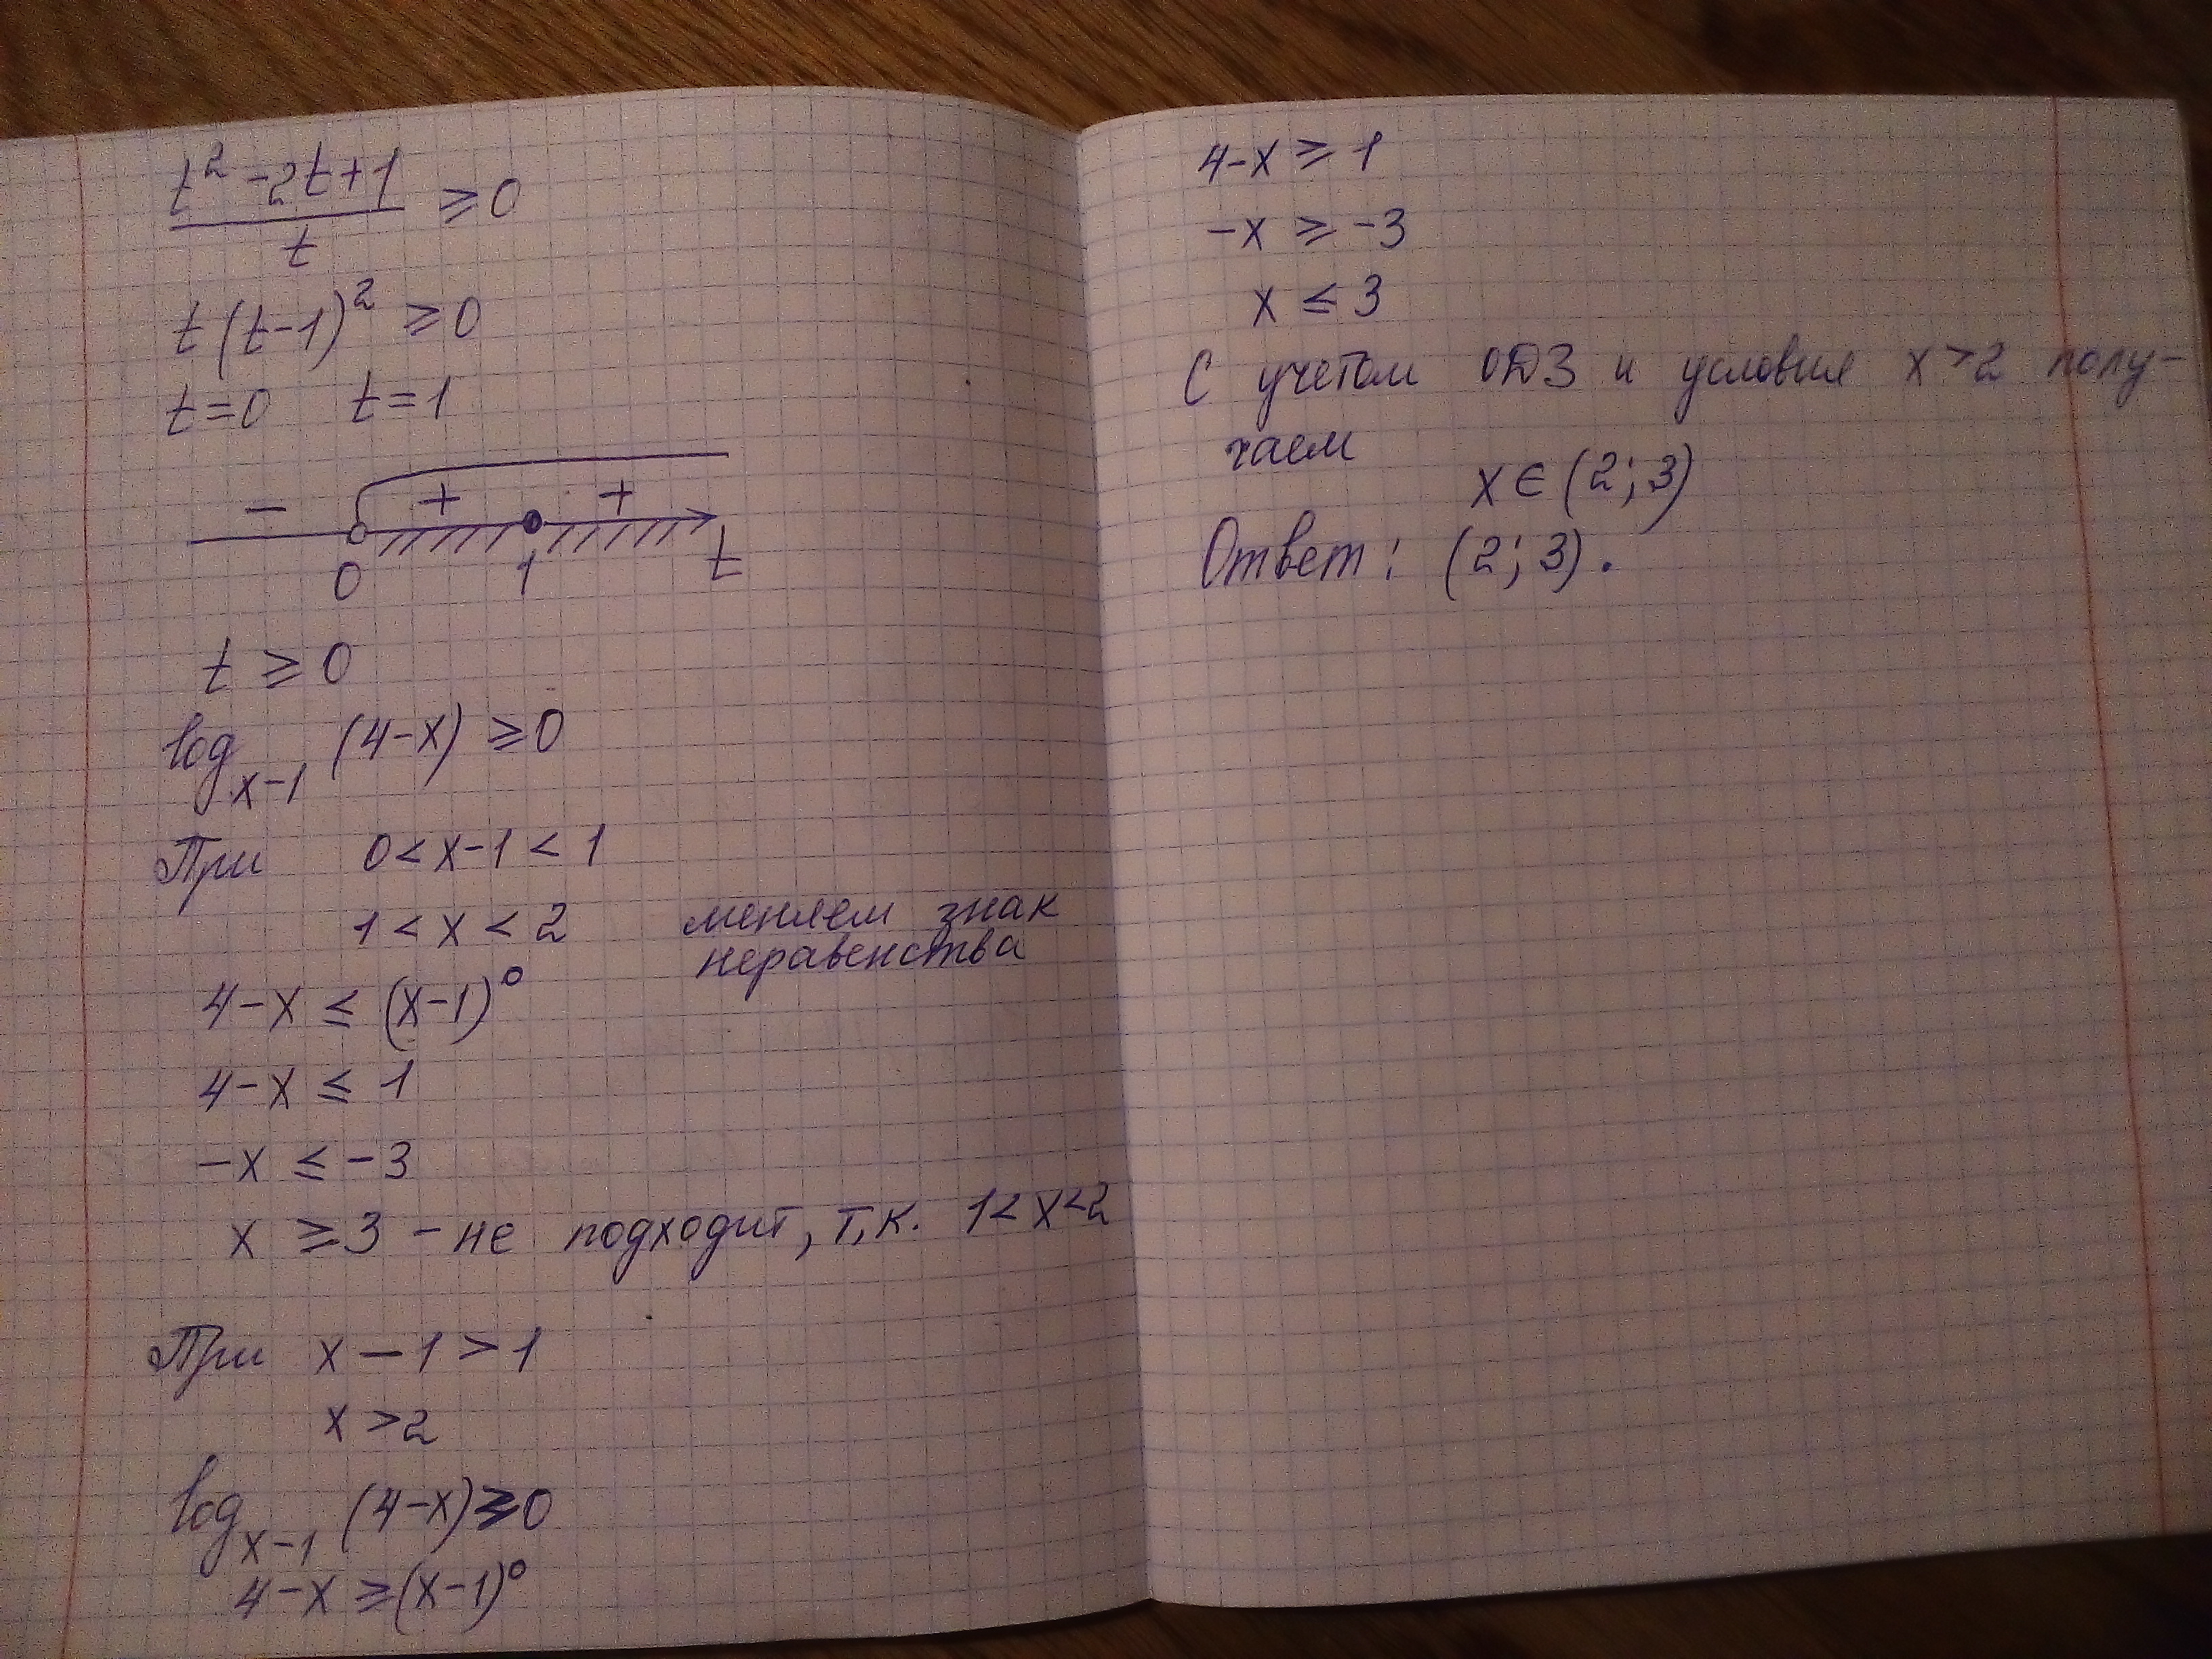 t² - 2t + 1 / t ≥ 0
t (t-1)² ≥ 0
t=0 t=1
- + +
0 1 t
t ≥ 0
log_{x-1} (4-x) ≥ 0
При 0 < x-1 < 1
1 < x < 2 меняем знак
неравенства
4-x ≤ (x-1)⁰
4-x ≤ 1
-x ≤ -3
x ≥ 3 - не подходит, т,к. 1< x <2
При x - 1 > 1
x > 2
log_{x-1} (4-x) ≥ 0
4-x ≥ (x-1)⁰
4-x ≥ 1
-x ≥ -3
x ≤ 3
С учетом ОДЗ и условия x > 2 полу-
чаем
x ∈ (2; 3)
Ответ: (2; 3).